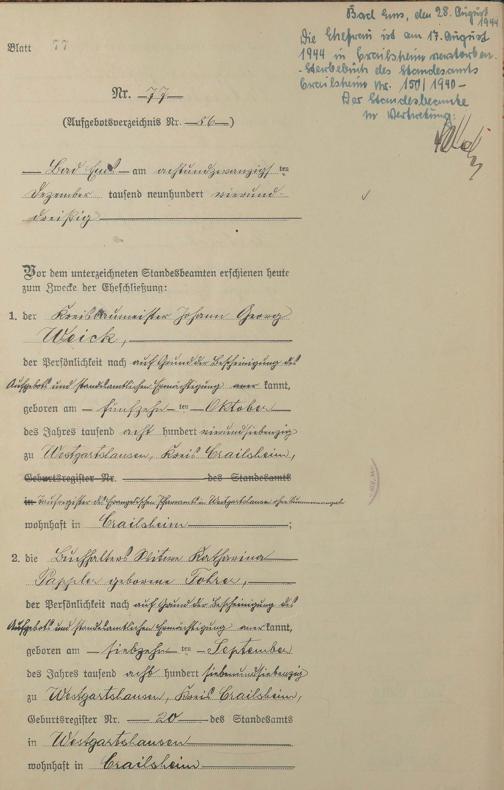 Blatt 77
Bad Ems, den 28. August 1944
Die Ehefrau ist am 17. August
1944 in Crailsheim verstorben.
- Sterbebuch des Standesamts
Crailsheim Nr. 150/1940 -
Der Standesbeamte
in Vertretung:
Nr. 77
(Aufgebotsverzeichnis Nr. 56)
Bad Ems am achtundzwanzigsten
Dezember tausend neunhundert vierund-
dreißig
Vor dem unterzeichneten Standesbeamten erschienen heute
zum Zwecke der Eheschließung:
1. der Kreisbaumeister Johann Georg
Weick,
der Persönlichkeit nach auf Grund der Bescheinigung des
Aufgebots und standesamtlichen Ermächtigung anerkannt,
geboren am fünfzehnten Oktober
des Jahres tausend acht hundert vierundsiebenzig
zu Westgartshausen, Kreis Crailsheim,
Geburtsregister Nr. des Standesamts
in Taufregister des Evangelischen Pfarramts in Westgartshausen ohne Nummernangabe
wohnhaft in Crailsheim;
2. die Buchhalters Witwe Katharina
geborene
der Persönlichkeit nach auf Grund der Bescheinigung des
Aufgebots und standesamtlichen Ermächtigung anerkannt,
geboren am siebzehnten September
des Jahres tausend acht hundert siebenundsiebenzig
zu Westgartshausen, Kreis Crailsheim,
Geburtsregister Nr. 20 des Standesamts
in Westgartshausen
wohnhaft in Crailsheim